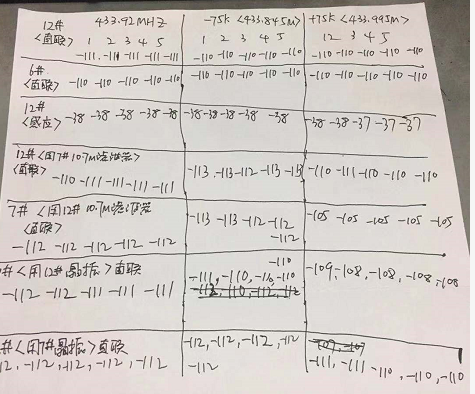 12# 433.92MHZ -75K <433.845M> +75K <433.995M>
<直联> 1 2 3 4 5 1 2 3 4 5 1 2 3 4 5
-111 -111 -111 -111 -111 -110 -110 -110 -110 -110 -110 -110 -110 -110 -110
6#
<直联> -110 -110 -110 -110 -110 -110 -110 -110 -110 -110 -110 -110 -110 -110 -110
12#
<感应> -38 -38 -38 -38 -38 -38 -38 -38 -38 -38 -38 -38 -37 -37 -37
12# <用7# 10.7M滤波器>
<直联> -113 -113 -112 -113 -113 -110 -111 -110 -110 -110
-110 -111 -111 -111 -111
7# <用12# 10.7M滤波器 -113 -113 -112 -112 -105 -105 -105 -105 -105
<直联> -112
-112 -112 -112 -112 -112
-110
# <用12#晶振> 直联 -111, -110, -110 -109, -108, -108, -108, -108
-112 -112 -111 -111 -111 -112, -110, -112, -112
# <用7#晶振> 直联 -112, -112, -112, -112 -107, -107
12, -112, -112, -112, -112 -112 -111, -111 -110, -110, -110